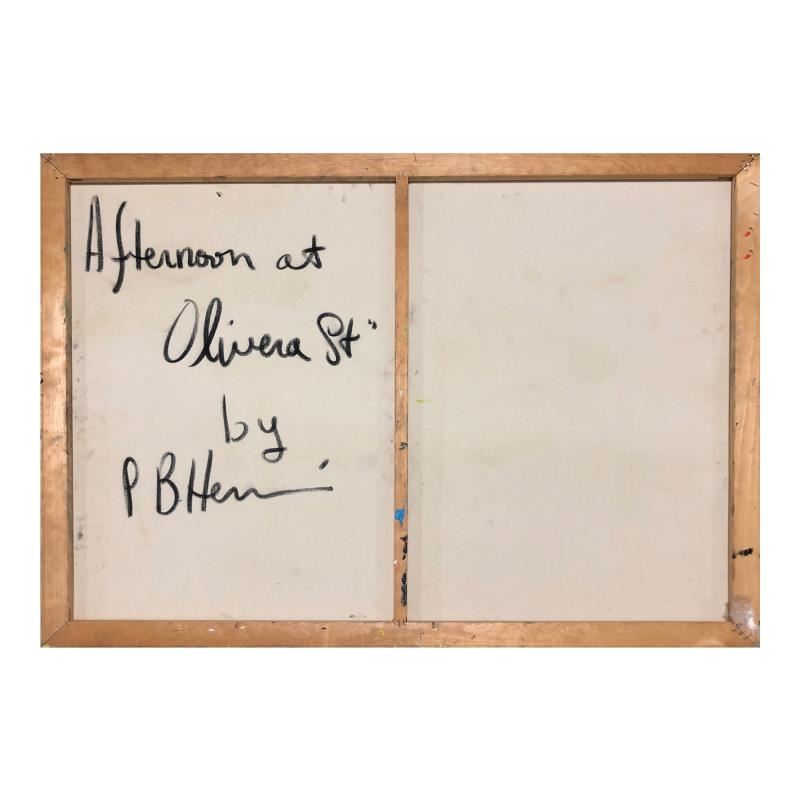 Afternoon at
Olivera St"
by
P B Henri